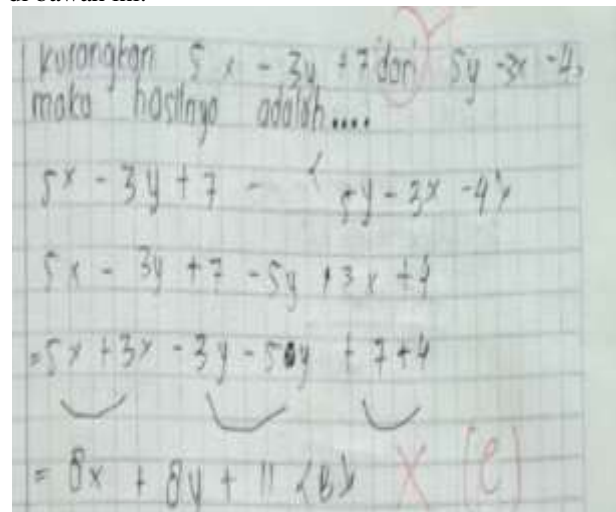 di bawah ini:
kurangkan 5x - 3y + 7 dari 5y - 3x - 4,
maka hasilnya adalah....
5x - 3y + 7 - (5y - 3x - 4)
5x - 3y + 7 - 5y + 3x + 4
= 5x + 3x - 3y - 5y + 7 + 4
= 8x + 8y + 11 (B) X (e)